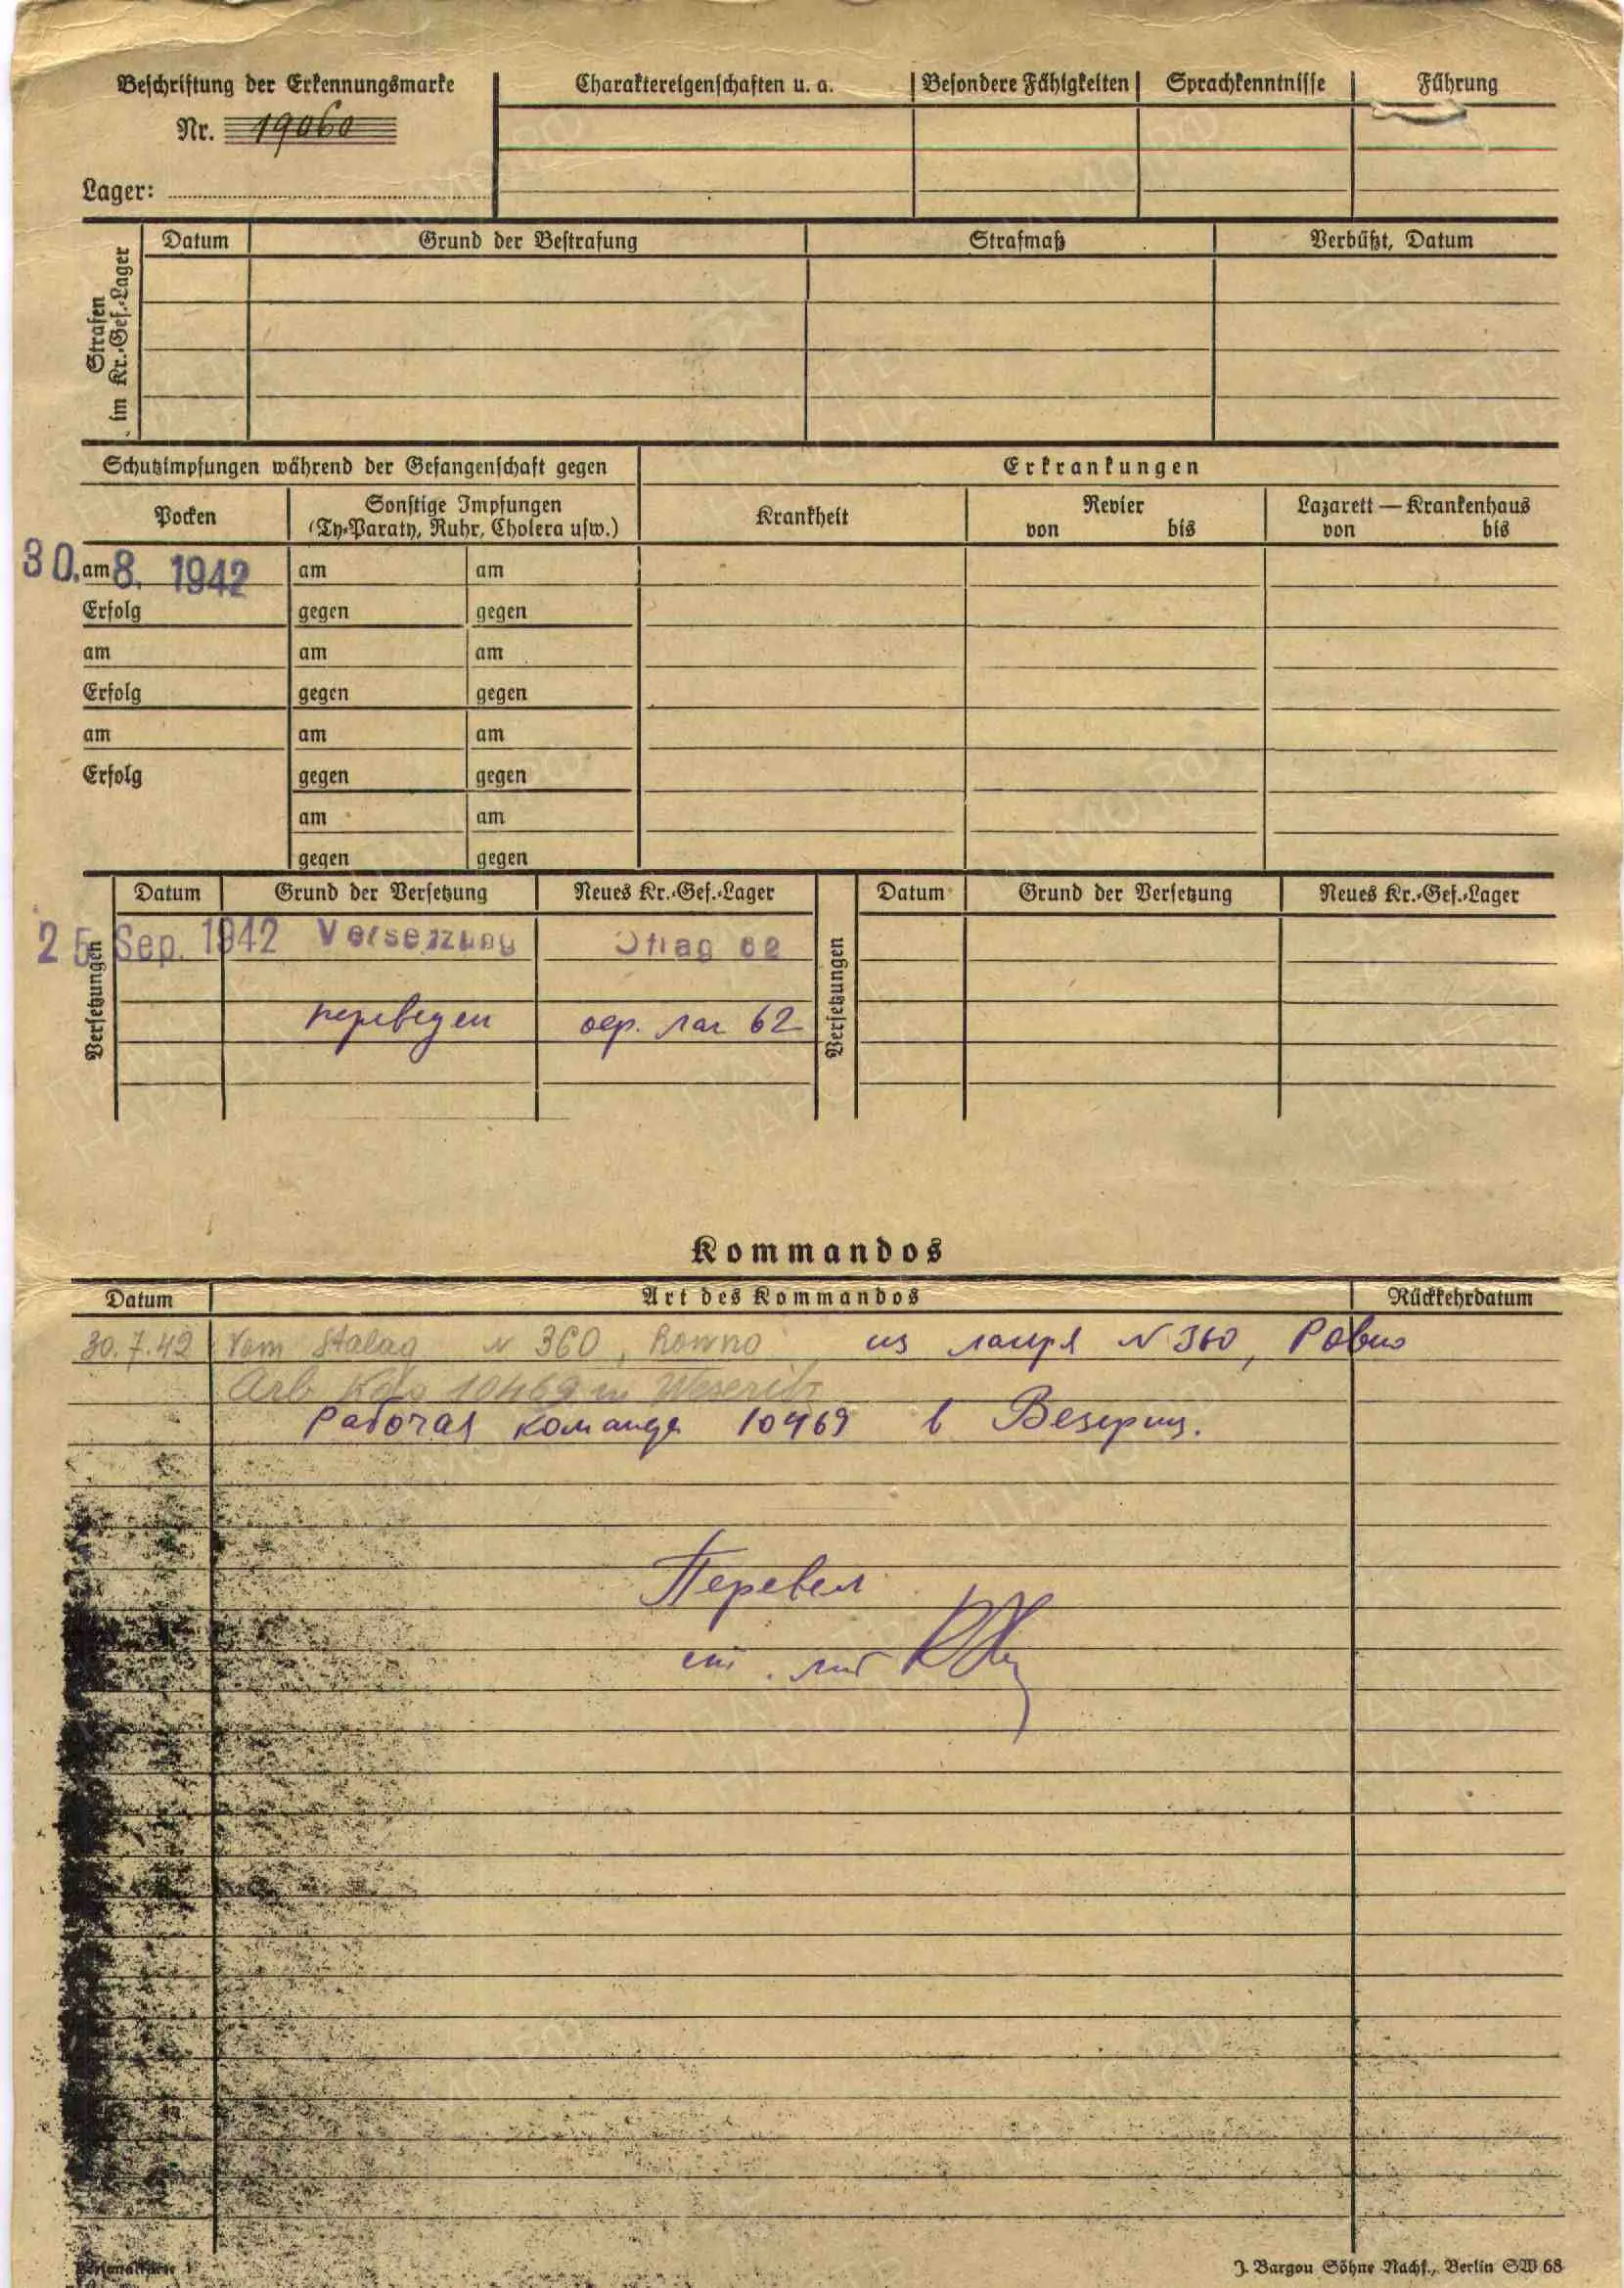 Beschriftung der Erkennungsmarke
Nr. 19060
Lager:
Charaktereigenschaften u. a.
Besondere Fähigkeiten
Sprachkenntnisse
Führung
Strafen im Kr.-Gef.-Lager
Datum Grund der Bestrafung Strafmaß Verbüßt, Datum
Schutzimpfungen während der Gefangenschaft gegen
Erkrankungen
Pocken
Sonstige Impfungen
(Ty-Paraty, Ruhr, Cholera usw.)
Krankheit
Revier
von bis
Lazarett — Krankenhaus
von bis
30. am 8. 1942 am am
Erfolg gegen gegen
am am am
Erfolg gegen gegen
am am am
Erfolg gegen gegen
am am
gegen gegen
Versetzungen
Datum Grund der Versetzung Neues Kr.-Gef.-Lager
25 Sep. 1942 Versetzung Oflag 62
переведен оф. лаг 62
Versetzungen
Datum Grund der Versetzung Neues Kr.-Gef.-Lager
Kommandos
Datum Art des Kommandos Rückkehrdatum
30.7.42 Vom Stalag N 360, Rowno из лагеря N 360, Ровно
Arb. Kdo 10469 in Weseritz
Рабочая команда 10469 в Везериц.
Перевел
ст. лит
Personalkarte I
J. Bargou Söhne Nachf., Berlin SW 68